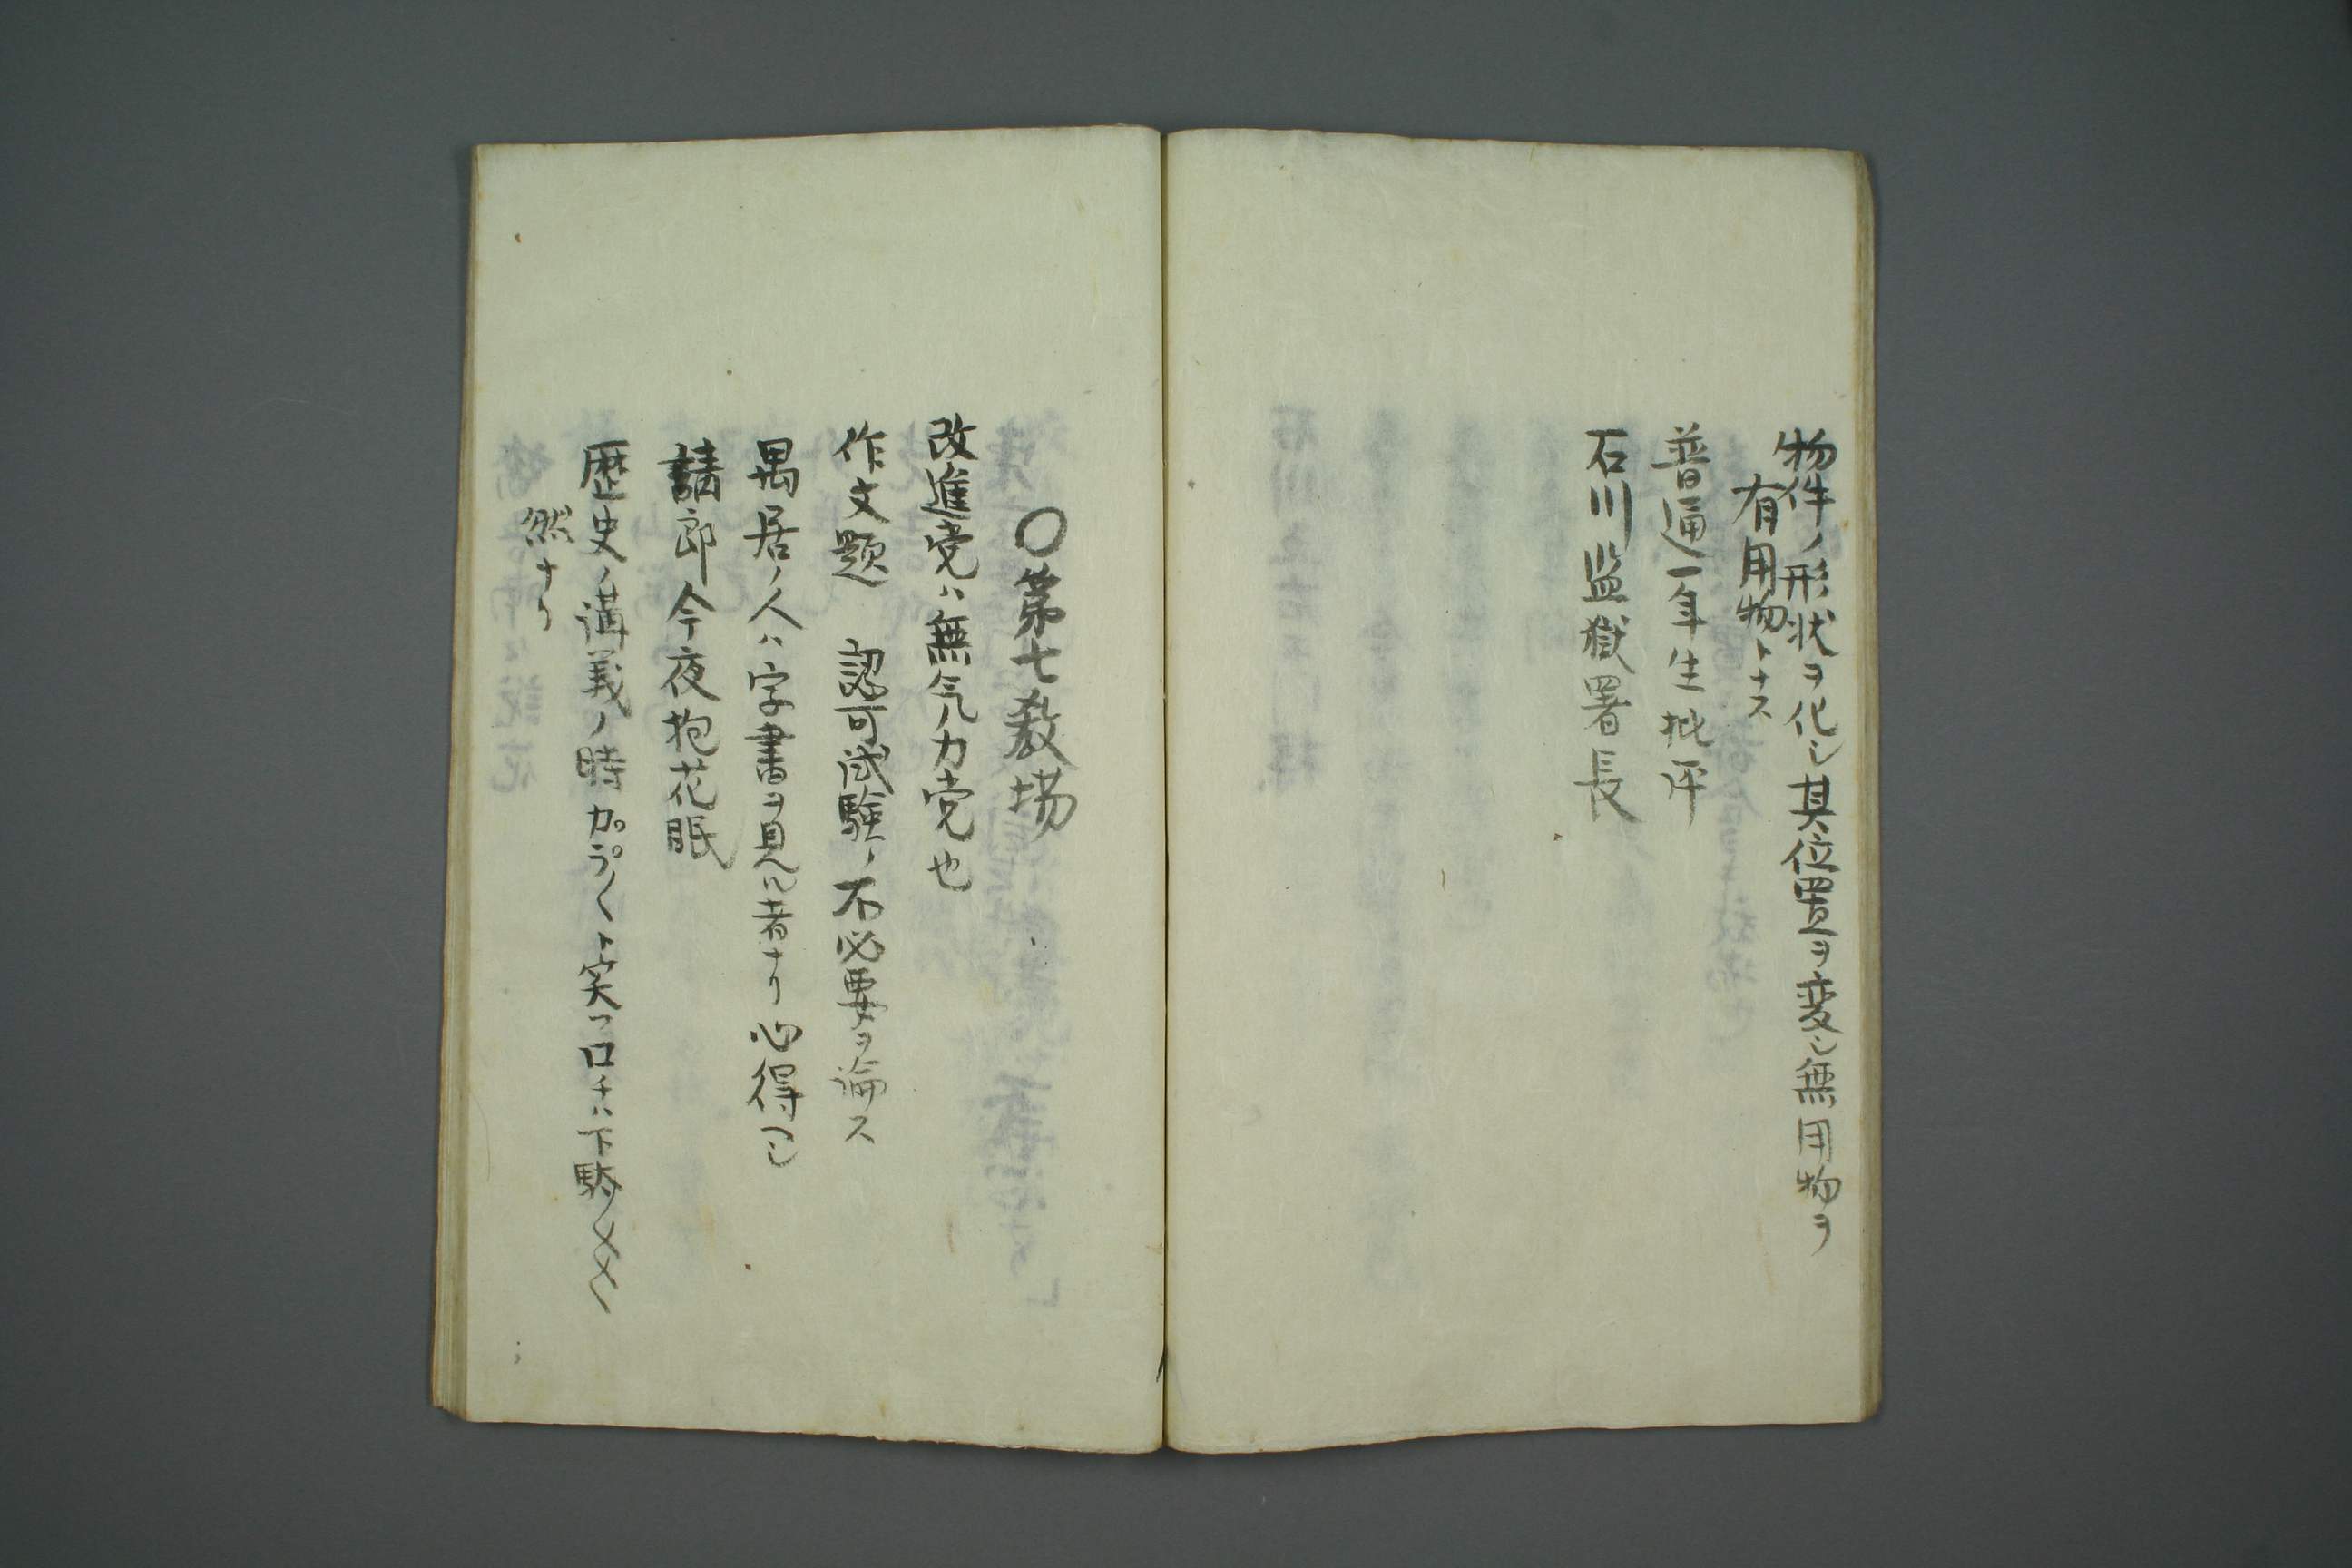 物件ノ形状ヲ化シ其位置ヲ変シ無用物ヲ
有用物トナス
普通一年生批評
石川監獄署長
〇第七教場
改進党ハ無気力党也
作文題　認可試験ノ不必要ヲ論ス
寓居ノ人ハ字書ヲ見ル者ナリ心得ヘシ
請郎今夜抱花眠
歴史ノ講義ノ時カラ〳〵ト笑フ口チハ下駄〳〵
然ナリ